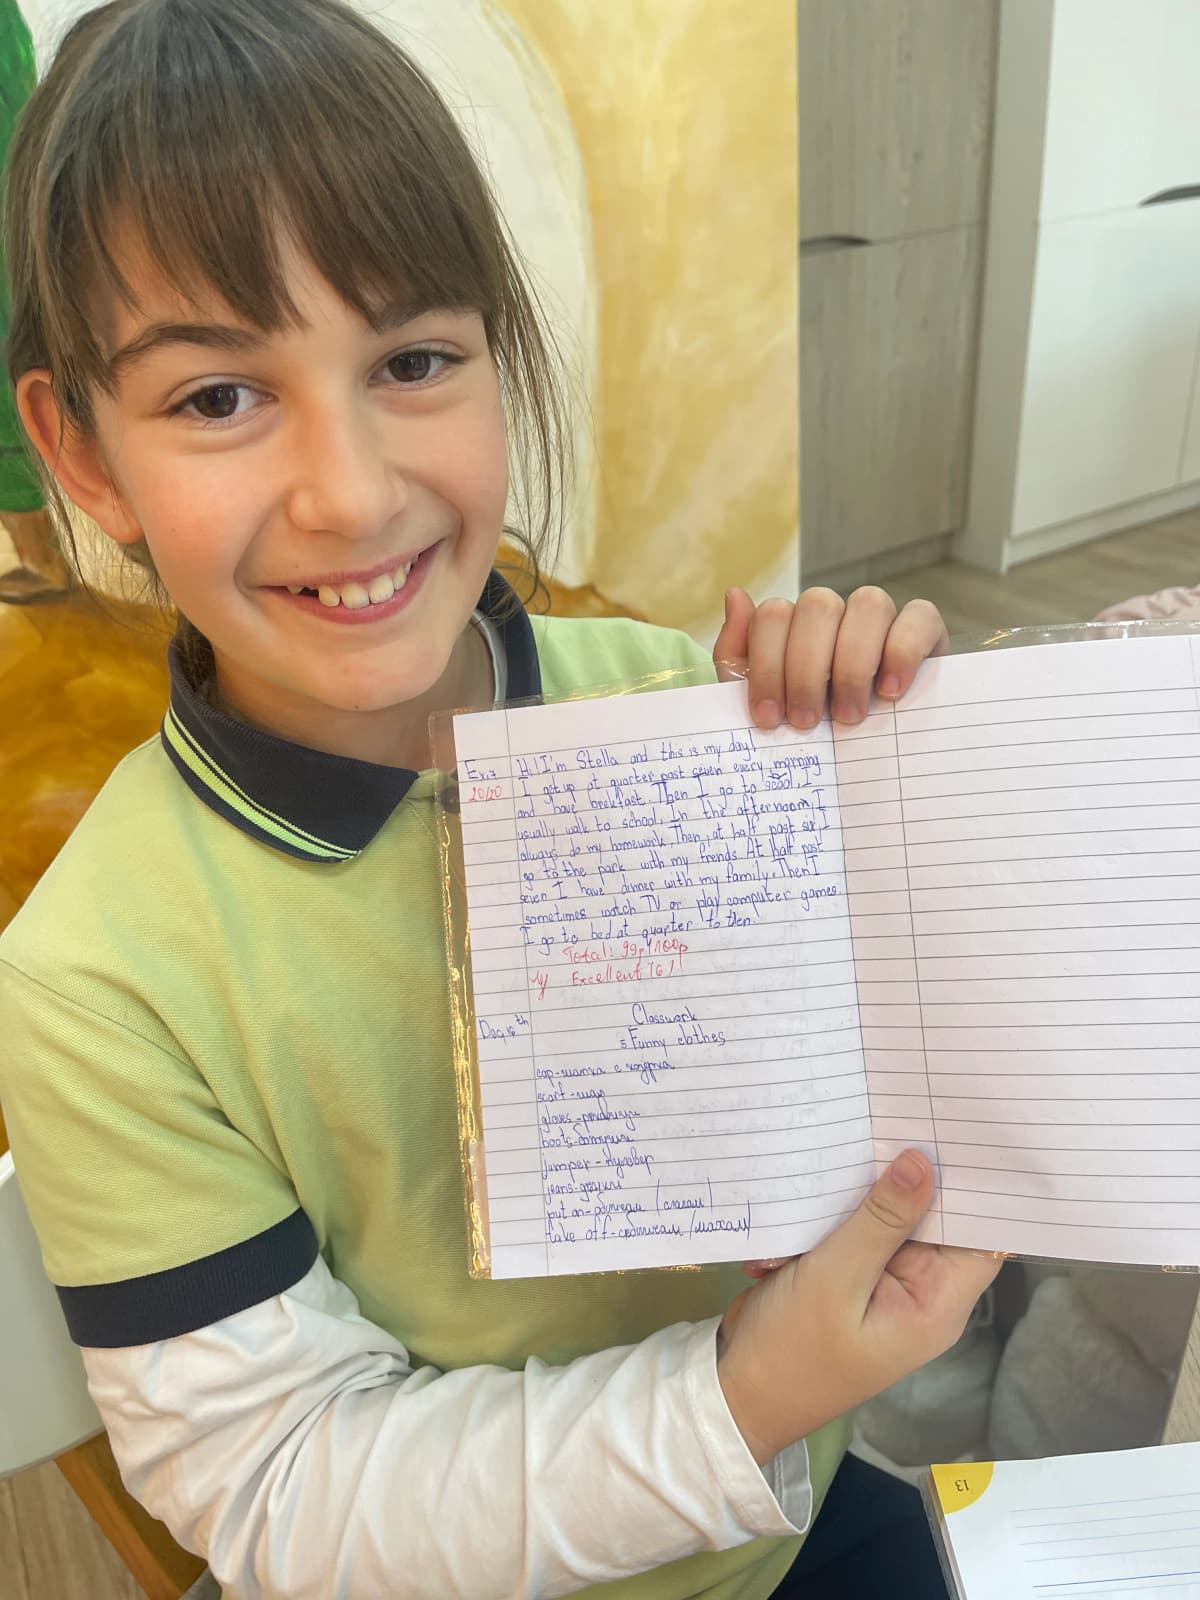 Ex.7 Hi! I'm Stella and this is my day!
20/20 I get up at quarter past seven every morning
and have brekfast. Then I go to scool, I
usually walk to school. In the afternoon, I
always do my homework, Then, at half past six, I
go to the park with my frends At half past
seven I have dinner with my family. Then I
sometimes watch TV or play computer games.
I go to bed at quarter to then.
Total: 99p/100p
Excellent /6/!
Classwork
Funny clothes
cap-шапка с козирка
scarf-шал
gloves-ръкавици
boots-ботуши
jumper-пуловер
jeans-дънки
put on-обличам /слагам/
take off-събличам /махам/
13